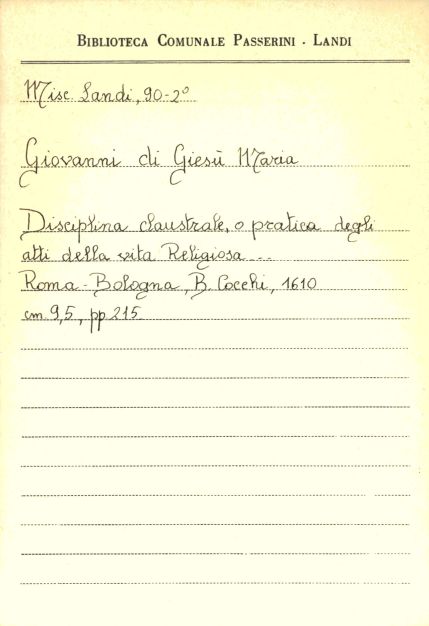 BIBLIOTECA COMUNALE PASSERINI - LANDI
Misc. Landi, 90-2°
Giovanni di Giesù Maria
Disciplina claustrale, o pratica degli
atti della vita Religiosa...
Roma - Bologna, B. Cocchi, 1610
cm. 9,5, pp 215